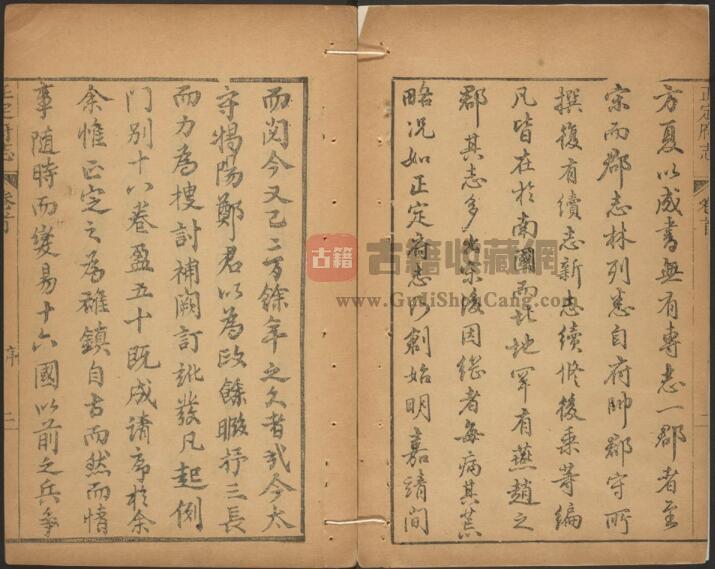 正定府志
卷首
方夏以成書無有專志一郡者至
宋而郡志林列悉自府帥郡守所
撰復有續志新志續修後乘等編
凡皆在於南國而北地罕有燕趙之
郡其志多出宋後因繼者每病其荒
略况如正定府志所創始明嘉靖間
而閲今又已二百餘年之久者哉今太
守揭陽鄭君以為政餘暇抒三長
而力為搜討補闕訂訛發凡起例
門別十八卷盈五十既成請序於余
余惟正定之為雄鎮自古而然而情
事随時而變易十六國以前之兵爭
正定府志
卷首
序
二
古籍
古籍收藏網
www.GujiShouCang.com